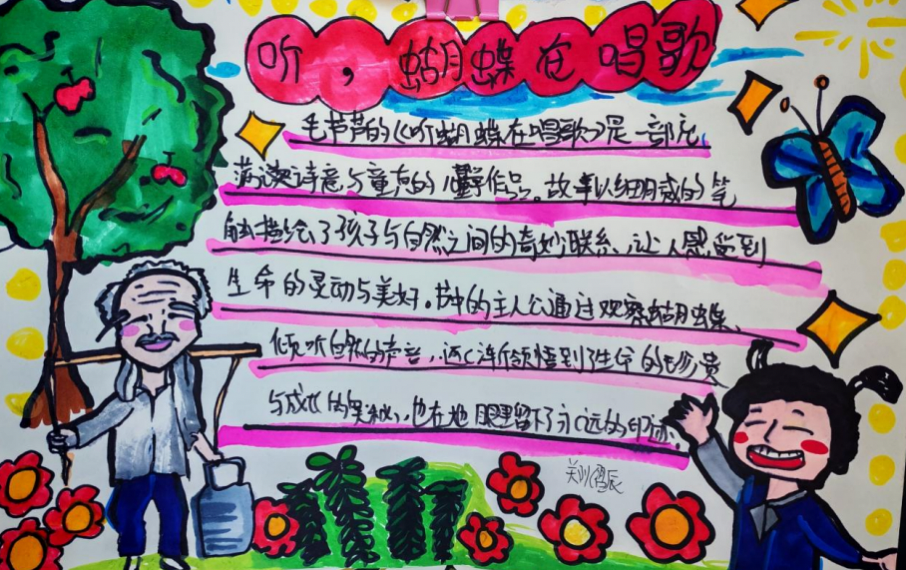 听，蝴蝶在唱歌
毛芦芦的《听蝴蝶在唱歌》是一部充
满诗意与童真的儿童作品。故事以细腻的笔
触描绘了孩子与自然之间的奇妙联系，让人感受到
生命的灵动与美好。书中的主人公通过观察蝴蝶、
倾听自然的声音，逐渐领悟到了生命的珍贵
与成长的奥秘，也在她眼里留下了永远的印迹。